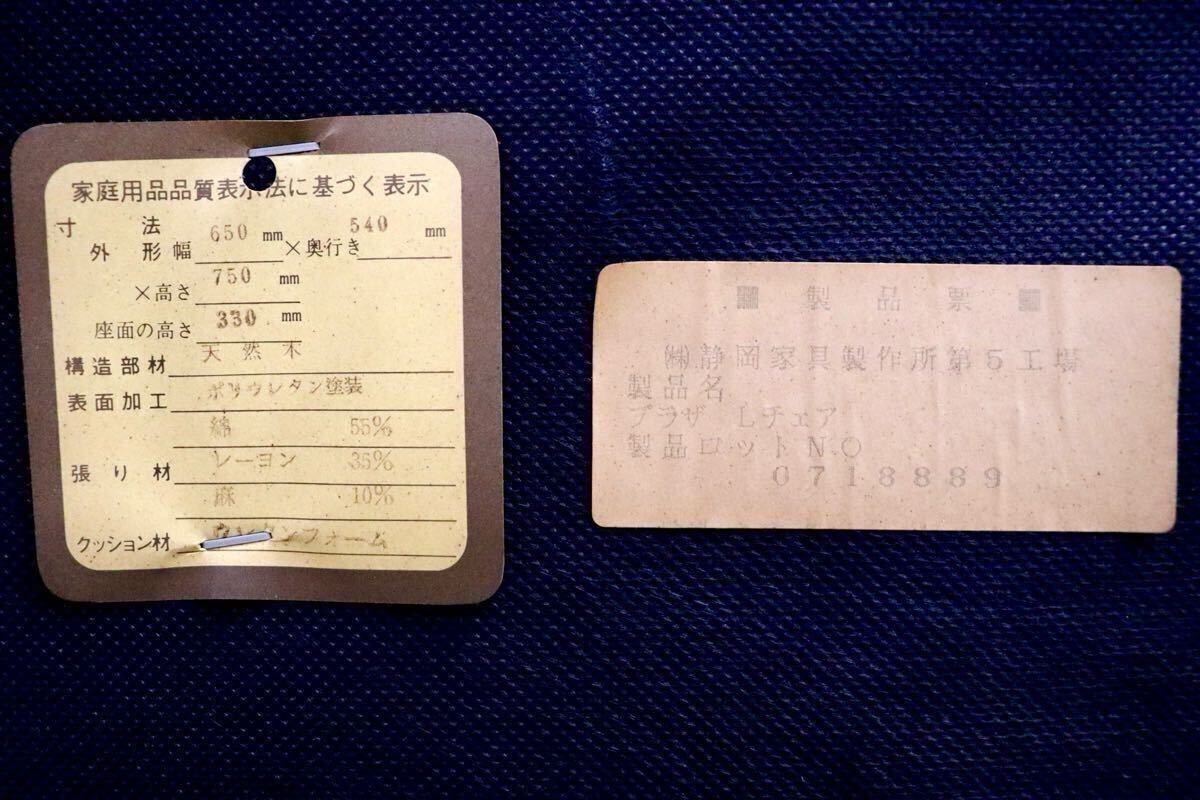 家庭用品品質表示法に基づく表示
寸法
外形幅 650 mm ×奥行き 540 mm
×高さ 750 mm
座面の高さ 330 mm
構造部材 天然木
表面加工 ポリウレタン塗装
綿 55%
張り材 レーヨン 35%
麻 10%
クッション材 ウレタンフォーム
製品票
㈱静岡家具製作所第5工場
製品名
プラザ Lチェア
製品ロットNO
0718889